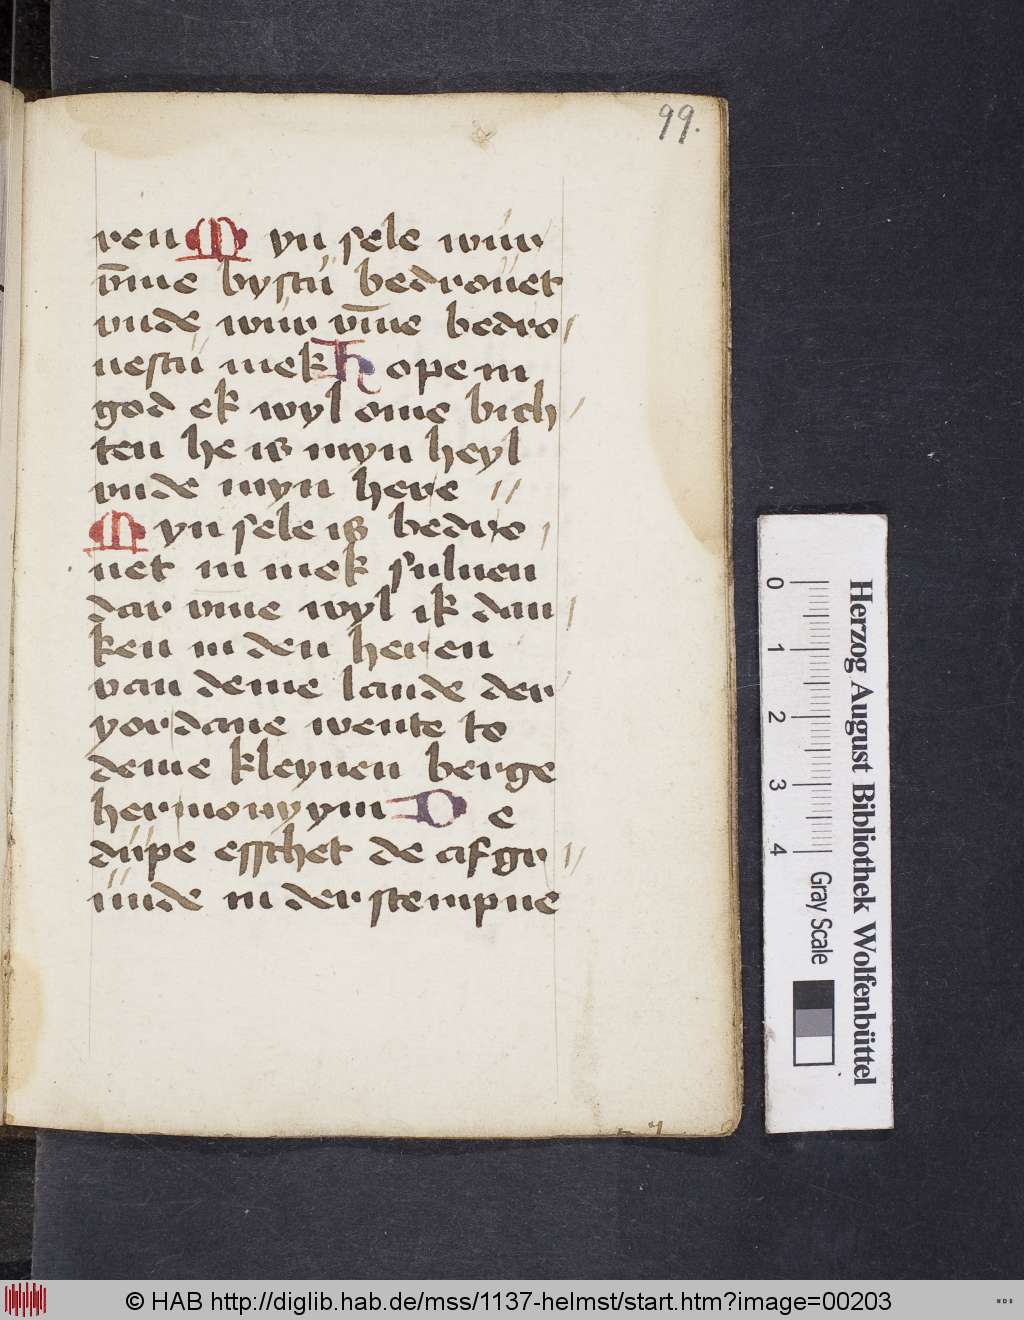 99.
ren Myn sele wur
v̅me bystu bedrouet
vnde wur v̅me bedro/
uestu mek Hope in
god ek wyl ome bich/
ten he is myn heyl
vnde myn here //
Myn sele is bedro/
uet in mek suluen
dar vme wyl ik dan/
ken in den heren
van deme lande der
yordane wente to
deme kleynen berge
hermonyym De
dupe esschet de afgr//
unde in der stempne
Herzog August Bibliothek Wolfenbüttel
0 1 2 3 4
Gray Scale
© HAB http://diglib.hab.de/mss/1137-helmst/start.htm?image=00203